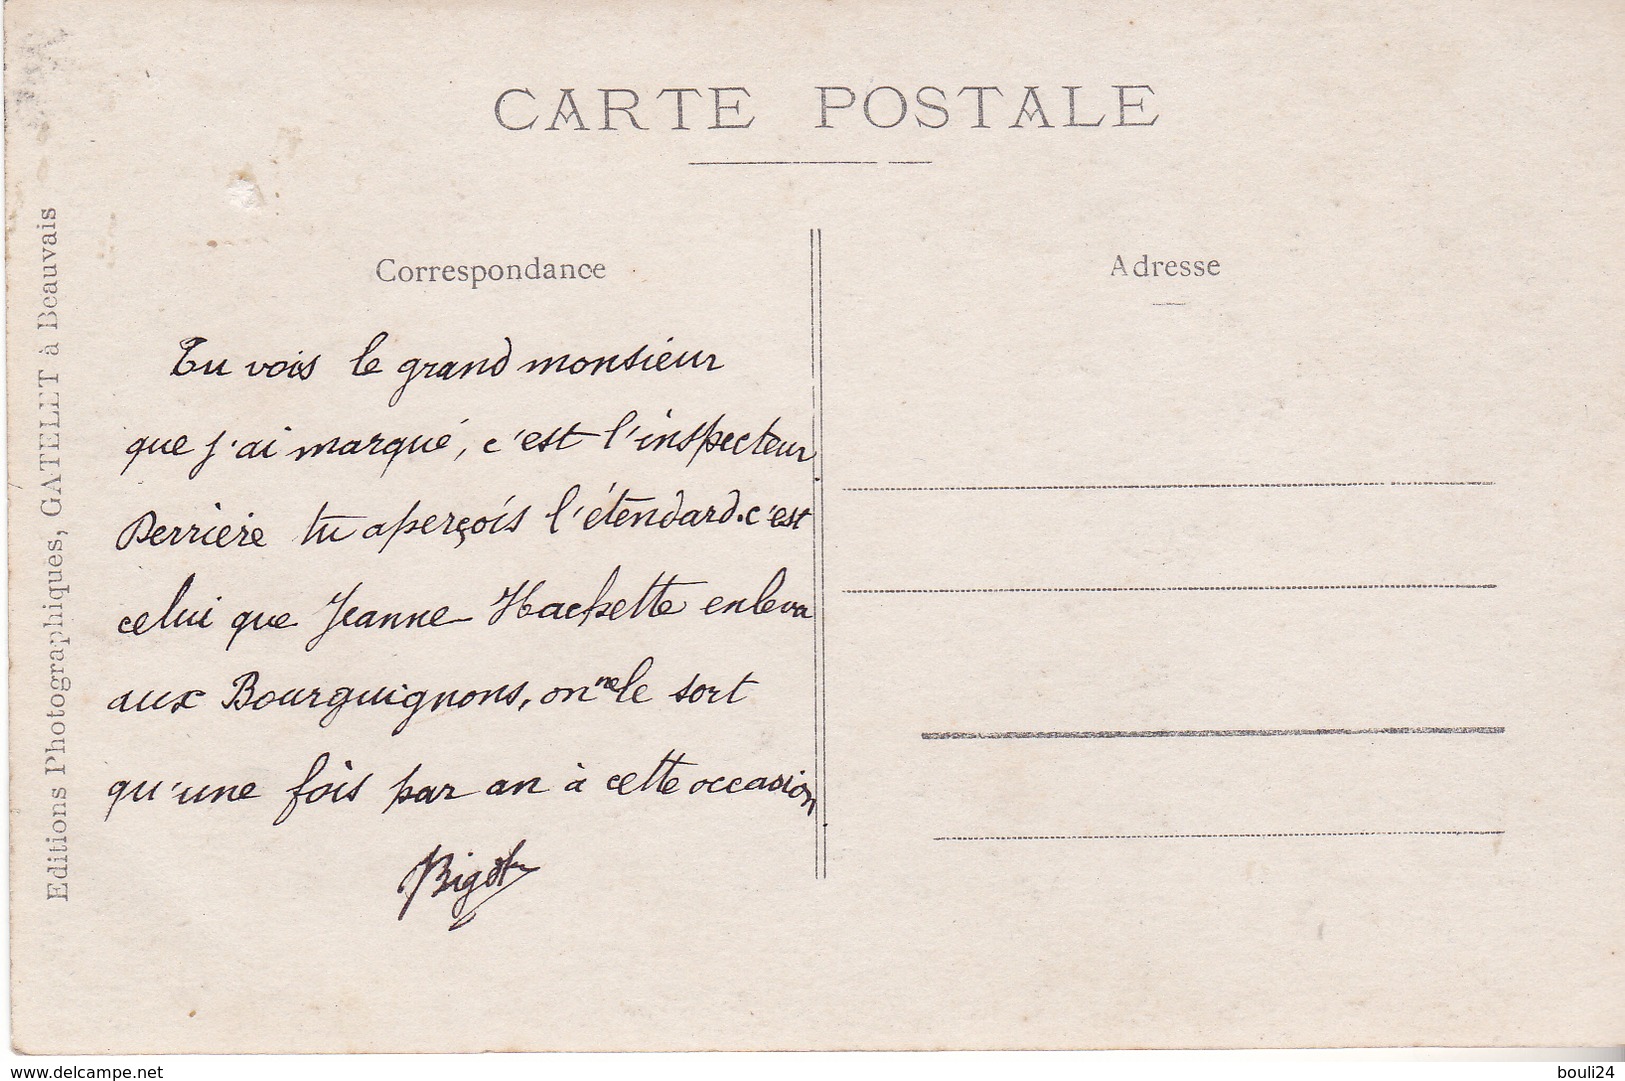 CARTE POSTALE
Correspondance
Adresse
Editions Photographiques, GATELET à Beauvais
Tu vois le grand monsieur
que j'ai marqué, c'est l'inspecteur
Derrière tu aperçois l'étendard. c'est
celui que Jeanne Hachette enleva
aux Bourguignons, on ne le sort
qu'une fois par an à cette occasion
Bigot
delcampe.net
bouli24